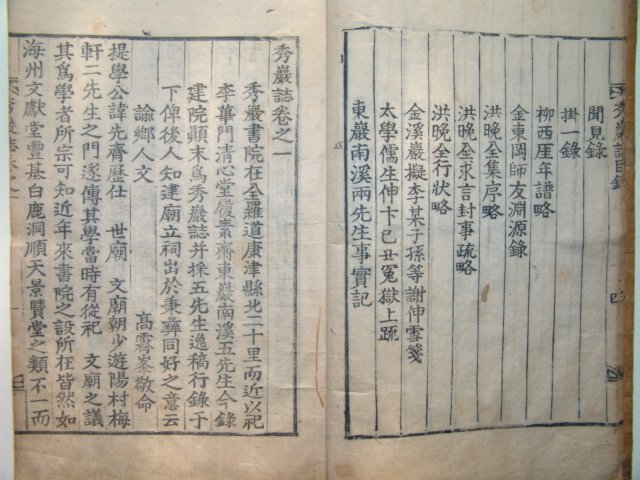 聞見錄
掛一錄
柳西厓年譜略
金東岡師友淵源錄
洪晚全集序略
洪晚全求言封事疏略
洪晚全行狀略
金溪巖擬李某子孫等謝伸雪箋
太學儒生伸卞己丑冤獄上疏
東巖南溪兩先生事實記
秀巖誌卷之一
秀巖書院在全羅道康津縣北二十里而近以祀
李華門淸心堂履素齋東巖南溪五先生今錄
建院顚末爲秀巖誌并採五先生逸稿行錄于
下俾後人知建廟立祠出於秉彛同好之意云
諭鄕人文 高霽峯敬命
提學公諱先齊歷仕 世廟 文廟朝少遊陽村梅
軒二先生之門遂傳其學當時有從祀 文廟之議
其爲學者所宗可知近年來書院之設所在皆然如
海州文獻堂豐基白鹿洞順天景賢堂之類不一而